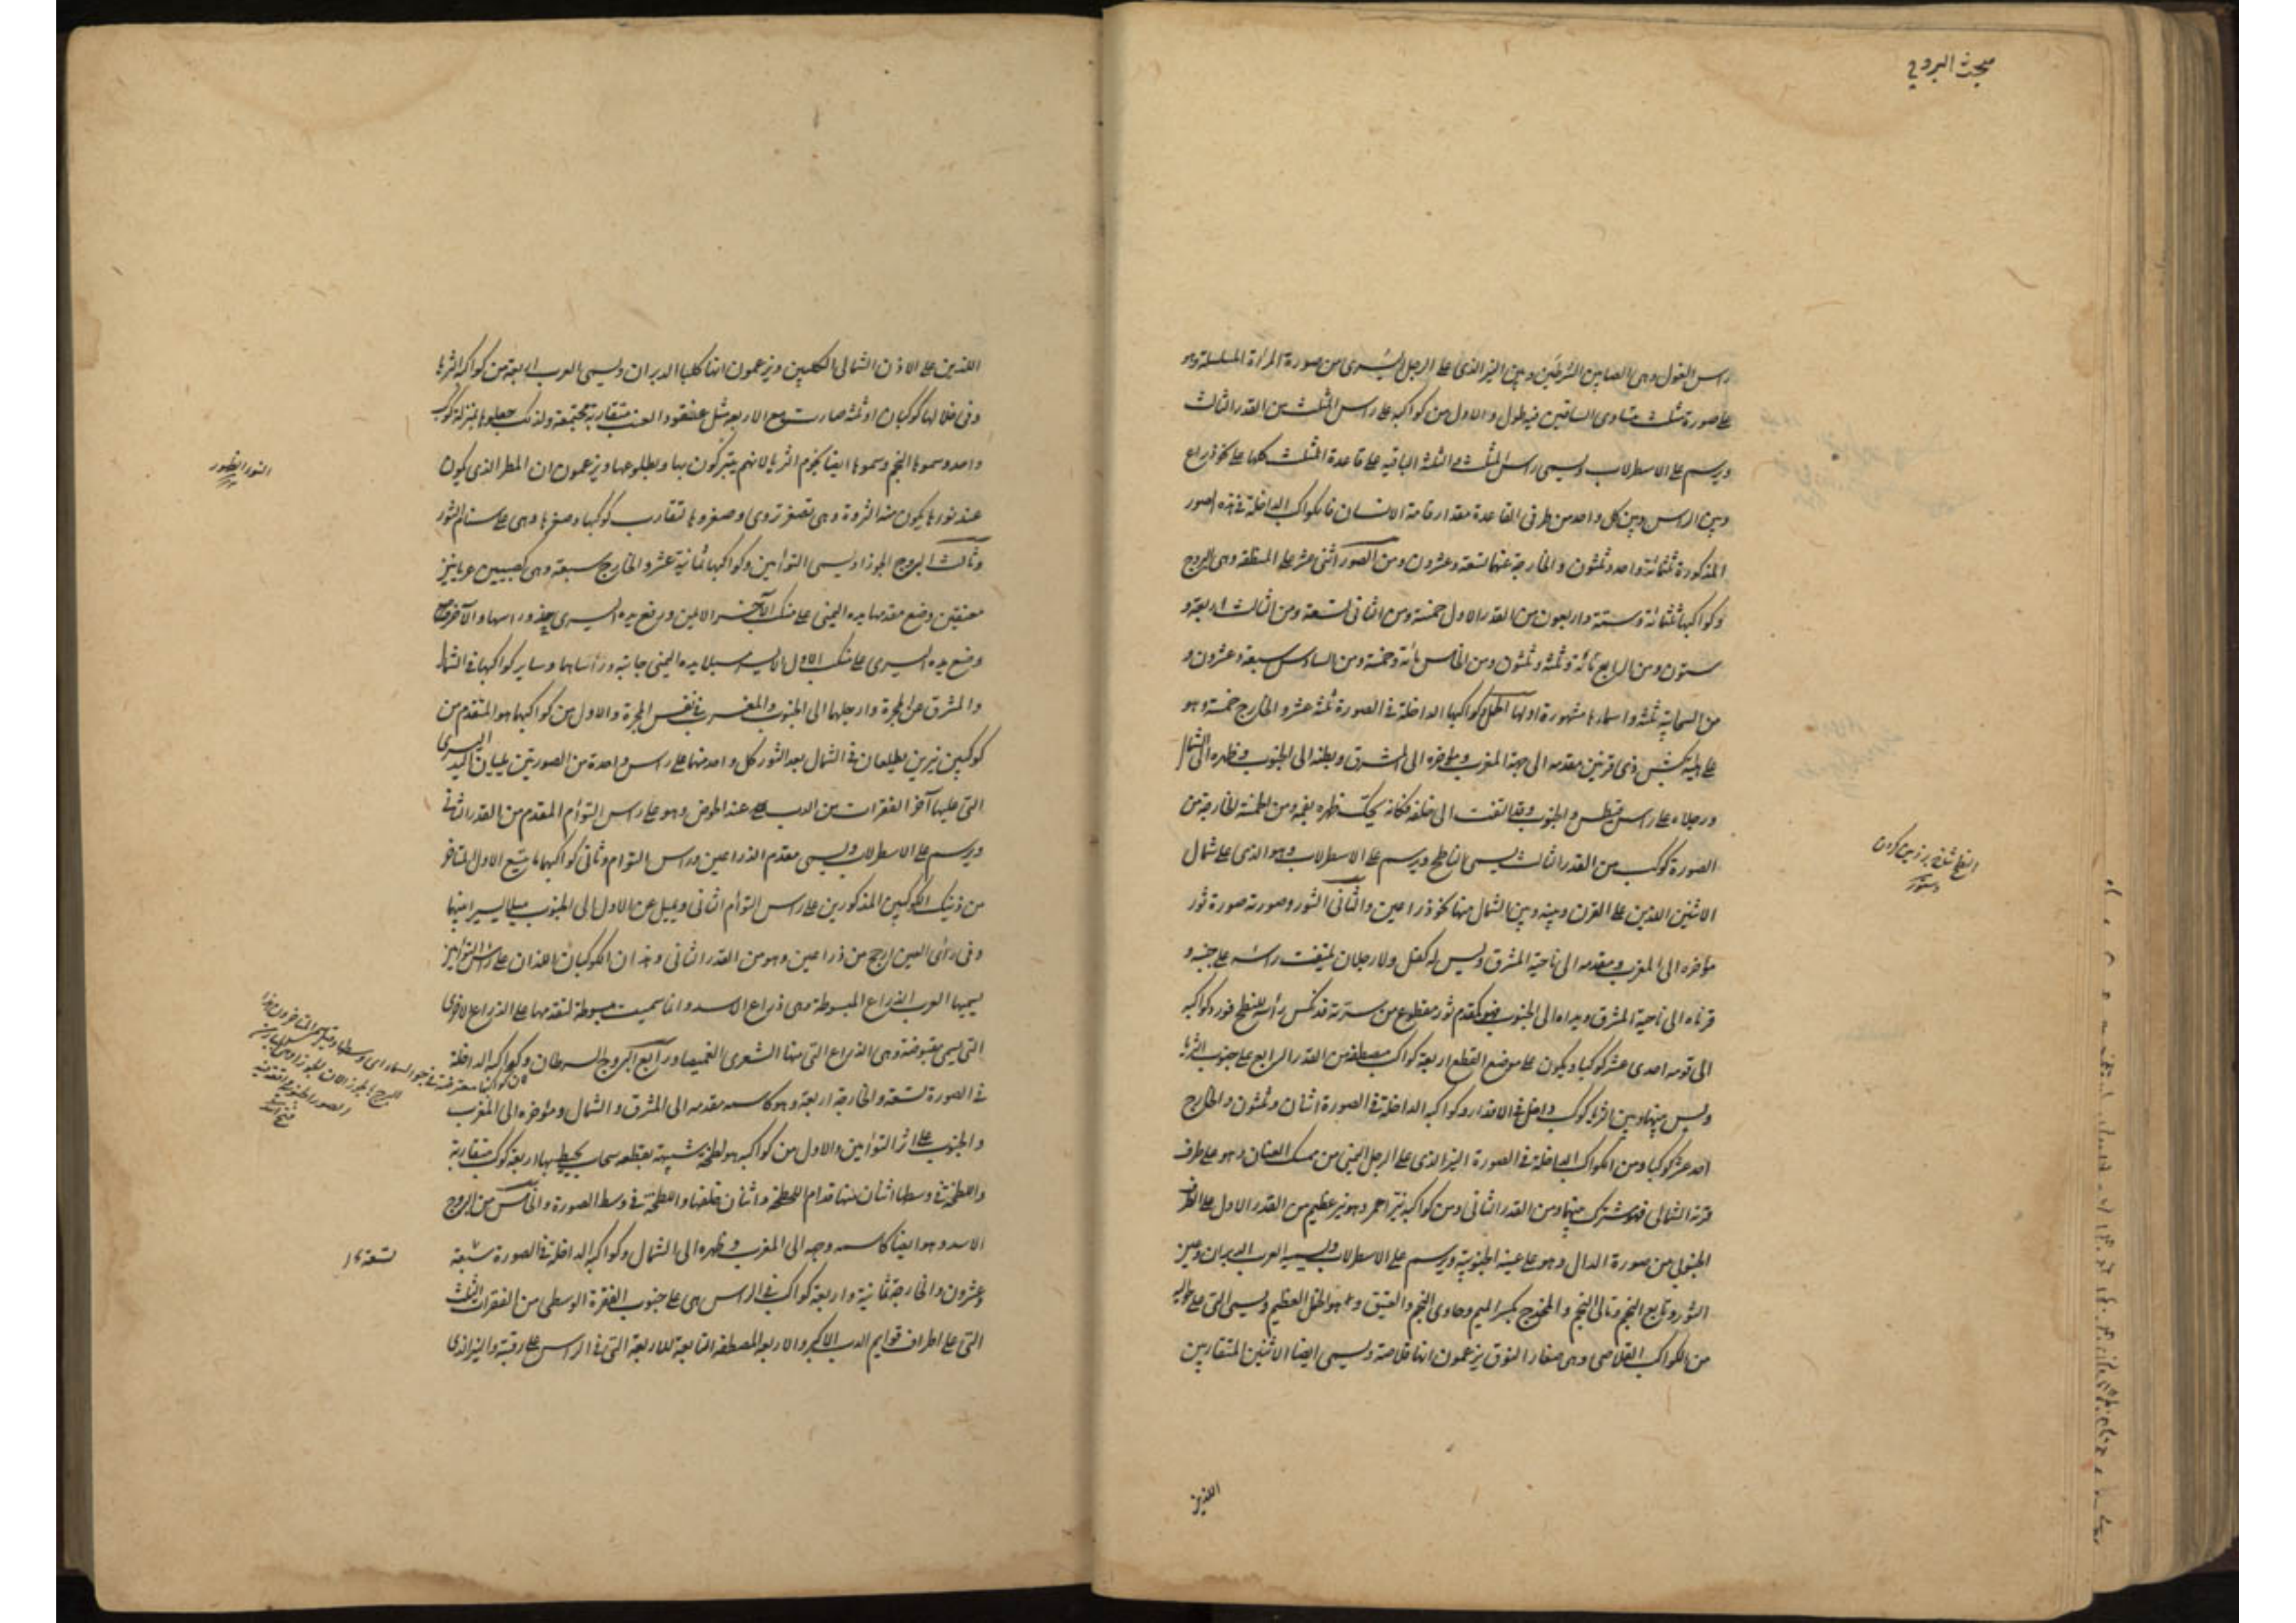 مبحث البروج
راس الغول وهى ما بين الشرطين وبين النير الذى على الرجل اليسرى من صورة المرأة المسلسلة وهو
على صورة مثلث متساوى الساقين فيه طول والاول من كواكبه على راس المثلث من القدر الثالث
ويرسم على الاسطرلاب ويسمى راس المثلث والثلثة الباقية على قاعدة المثلث كلها على نحو ذراع
وبين الراس وبين كل واحد من طرفى القاعدة مقدار قامة الانسان فالكواكب الداخلة فى هذه الصور
المذكورة ثلثمائة واحد وثلثون والخارجة عنها تسعة وعشرون ومن الصور اثنى عشر على المنطقة وهى البروج
وكواكبها ثلثمائة وستة واربعون من القدر الاول خمسة ومن الثانى تسعة ومن الثالث اربعة و
ستون ومن الرابع مائة وثلثة وثلثون ومن الخامس مائة وخمسة ومن السادس سبعة وعشرون و
من السحابية ثلثة واسمارها مشهورة اولها الحمل وكواكبها الداخلة فى الصورة ثلثة عشر والخارج خمسة وهو
على هيئة كبش ذى قرنين مقدمه الى جهة المغرب ومؤخره الى المشرق وبطنه الى الجنوب وظهره الى الشمال
ورجلاه على راس قيطس والجنوب وقد التفت الى خلفه فكانه يحك ظهره بفمه ومن الخمسة الخارجة من
الصورة كوكب من القدر الثالث يسمى الناطح ويرسم على الاسطرلاب وهو الذى على شمال
الاثنين اللذين على القرن وبينه وبين الشمال منها نحو ذراعين والثانى الثور وصورته صورة ثور
مؤخره الى المغرب ومقدمه الى ناحية المشرق وليس له كفل ولا رجلان ملتفت راسه على جنبه و
قرناه الى ناحية المشرق ويداه الى الجنوب فهو كمقدم ثور مقطوع من سرته قد نكس رأسه للنطح فورد كواكبه
الى قومه احدى عشر كوكبا ويكون على موضع القطع اربعة كواكب مصطفة من القدر الرابع على جنوب الثريا
وليس بينها وبين الثريا كوكب داخل فى الاقدار وكواكبه الداخلة فى الصورة اثنان وثلثون والخارج
احد عشر كوكبا ومن الكواكب الداخلة فى الصورة النير الذى على الرجل اليمنى من ممسك العنان وهو على طرف
قرنه الشمالى فهو مشترك بينهما ومن القدر الثانى ومن كواكبه نير احمر وهو نير عظيم من القدر الاول على الطرف
الجنوبى من صورة الدال وهو على عينه الجنوبية ويرسم على الاسطرلاب ويسميه العرب الدبران وعين
الثور وتابع النجم وتالى النجم والمخدج بكسر الميم وحادى النجم والفنيق وهو الجمل العظيم ويسمى التى على حواليه
من الكواكب القلاص وهى صغار النوق يزعمون انها قلاصه ويسمى ايضا الاثنين المتقاربين
اللذين
اللذين على الاذن الشمالى الكلبين ويزعمون انها كلبا الدبران ويسمى العرب الاربعة من كواكبه الثريا
وفى خلالها كوكبان او ثلثة صارت مع الاربعة مثل عنقود العنب متقاربة مجتمعة ولذلك جعلوها بمنزلة كوكب
واحد وسموها النجم وسموها ايضا نجوم الثريا لانهم يتبركون بها وبطلوعها ويزعمون ان المطر الذى يكون
عند نورها يكون منه الثروة وهى تصغير ثروى وصغروها لتقارب كوكبها وصغرها وهى على سنام الثور
وثالث البروج الجوزا ويسمى التوأمين وكواكبها ثمانية عشر والخارج سبعة وهى كصبيين عريانين
معتنقين وضع مقدمها يده اليمنى على منكب الآخر الايمن ورفع يده اليسرى حذو راسها والآخر
وضع يده اليسرى على منكب الاول الايسر مسبلا يده اليمنى جانبه ورأساهما وساير كواكبها فى الشمال
والمشرق عن المجرة وارجلهما الى الجنوب والمغرب فى نفس المجرة والاول من كواكبهما هو المتقدم من
كوكبين نيرين يطلعان فى الشمال بعد الثور كل واحد منهما على راس واحدة من الصورتين يليان اليد اليسرى
التى عليها آخر الفقرات من الدب على عند الحوض وهو على راس التوأم المقدم من القدر الثانى
ويرسم على الاسطرلاب ويسمى مقدم الذراعين وراس التوام وثانى كواكبهما ما يتبع الاول المتاخر
من ذينك الكوكبين المذكورين على راس التوأم الثانى ويميل عن الاول الى الجنوب ميلا يسيرا بينهما
وفى رأى العين ارجح من ذراعين وهو من القدر الثانى وهذان الكوكبان اللذان على راس التوأمين
يسميها العرب الذراع المبسوطة وهى ذراع الاسد وانما سميت مبسوطة لتقدمها على الذراع الاخرى
التى يسمى مقبوضة وهى الذراع التى منها الشعرى الغميصا ورابع البروج السرطان وكواكبه الداخلة
فى الصورة تسعة والخارجة اربعة وهو كاسمه مقدمه الى المشرق والشمال ومؤخره الى المغرب
والجنوب على اثر التوأمين والاول من كواكبه هو لطخة شبيهة بقطعة سحاب يحيط بها اربعة كوكب متقاربة
واللطخة فى وسطها اثنان منها قدام اللطخة واثنان خلفها واللطخة فى وسط الصورة والخامس من البروج
الاسد وهو ايضا كاسمه وجهه الى المغرب وظهره الى الشمال وكواكبه الداخلة فى الصورة سبعة
وعشرون والخارجة ثمانية واربعة كواكب فى الراس هى على جنوب الفقرة الوسطى من الفقرات الثلث
التى على اطراف قوايم الدب الاكبر والاربعة المصطفة التابعة للاربعة التى فى الراس على رقبته والنير الذى
تسعة